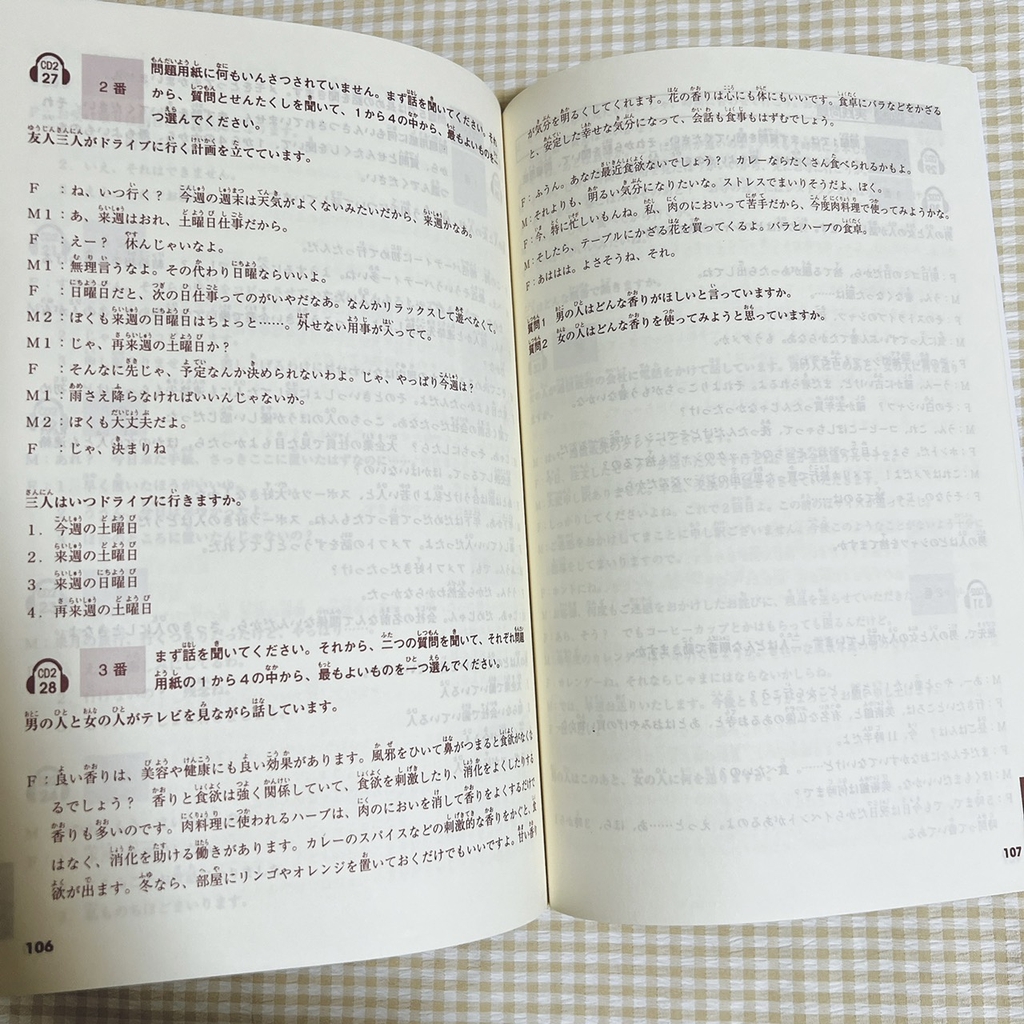 CD2
27
2番
問題用紙に何もいんさつされていません。まず話を聞いてください。それ
から、質問とせんたくしを聞いて、1から4の中から、最もよいものを一
つ選んでください。
友人三人がドライブに行く計画を立てています。
F :ね、いつ行く? 今週の週末は天気がよくないみたいだから、来週かなあ。
M1:あ、来週はおれ、土曜日仕事だから。
F :えー? 休んじゃいなよ。
M1:無理言うなよ。その代わり日曜ならいいよ。
F :日曜日だと、次の日仕事ってのがいやだなあ。なんかリラックスして遊べなくて。
M2:ぼくも来週の日曜日はちょっと……。外せない用事が入ってて。
M1:じゃ、再来週の土曜日か?
F :そんなに先じゃ、予定なんか決められないわよ。じゃ、やっぱり今週は?
M1:雨さえ降らなければいいんじゃないか。
M2:ぼくも大丈夫だよ。
F :じゃ、決まりね
三人はいつドライブに行きますか。
1. 今週の土曜日
2. 来週の土曜日
3. 来週の日曜日
4. 再来週の土曜日
CD2
28
3番
まず話を聞いてください。それから、二つの質問を聞いて、それぞれ問題
用紙の1から4の中から、最もよいものを一つ選んでください。
男の人と女の人がテレビを見ながら話しています。
F:良い香りは、美容や健康にも良い効果があります。風邪をひいて鼻がつまると食欲がなくな
るでしょう? 香りと食欲は強く関係していて、食欲を刺激したり、消化をよくしたりする
香りも多いのです。肉料理に使われるハーブは、肉のにおいを消して香りをよくするだけで
はなく、消化を助ける働きがあります。カレーのスパイスなどの刺激的な香りをかぐと、食
欲が出ます。冬なら、部屋にリンゴやオレンジを置いておくだけでもいいですよ。甘い香り
106
が気分を明るくしてくれます。花の香りは心にも体にもいいです。食卓にバラなどをかざる
と、安定した幸せな気分になって、会話も食事もはずむでしょう。
F:ふうん。あなた最近食欲ないでしょう? カレーならたくさん食べられるかもよ。
M:それよりも、明るい気分になりたいな。ストレスでまいりそうだよ、ぼく。
F:今、特に忙しいもんね。私、肉のにおいって苦手だから、今度肉料理で使ってみようかな。
M:そしたら、テーブルにかざる花を買ってくるよ。バラとハーブの食卓。
F:あははは。よさそうね、それ。
質問1 男の人はどんな香りがほしいと言っていますか。
質問2 女の人はどんな香りを使ってみようと思っていますか。
107